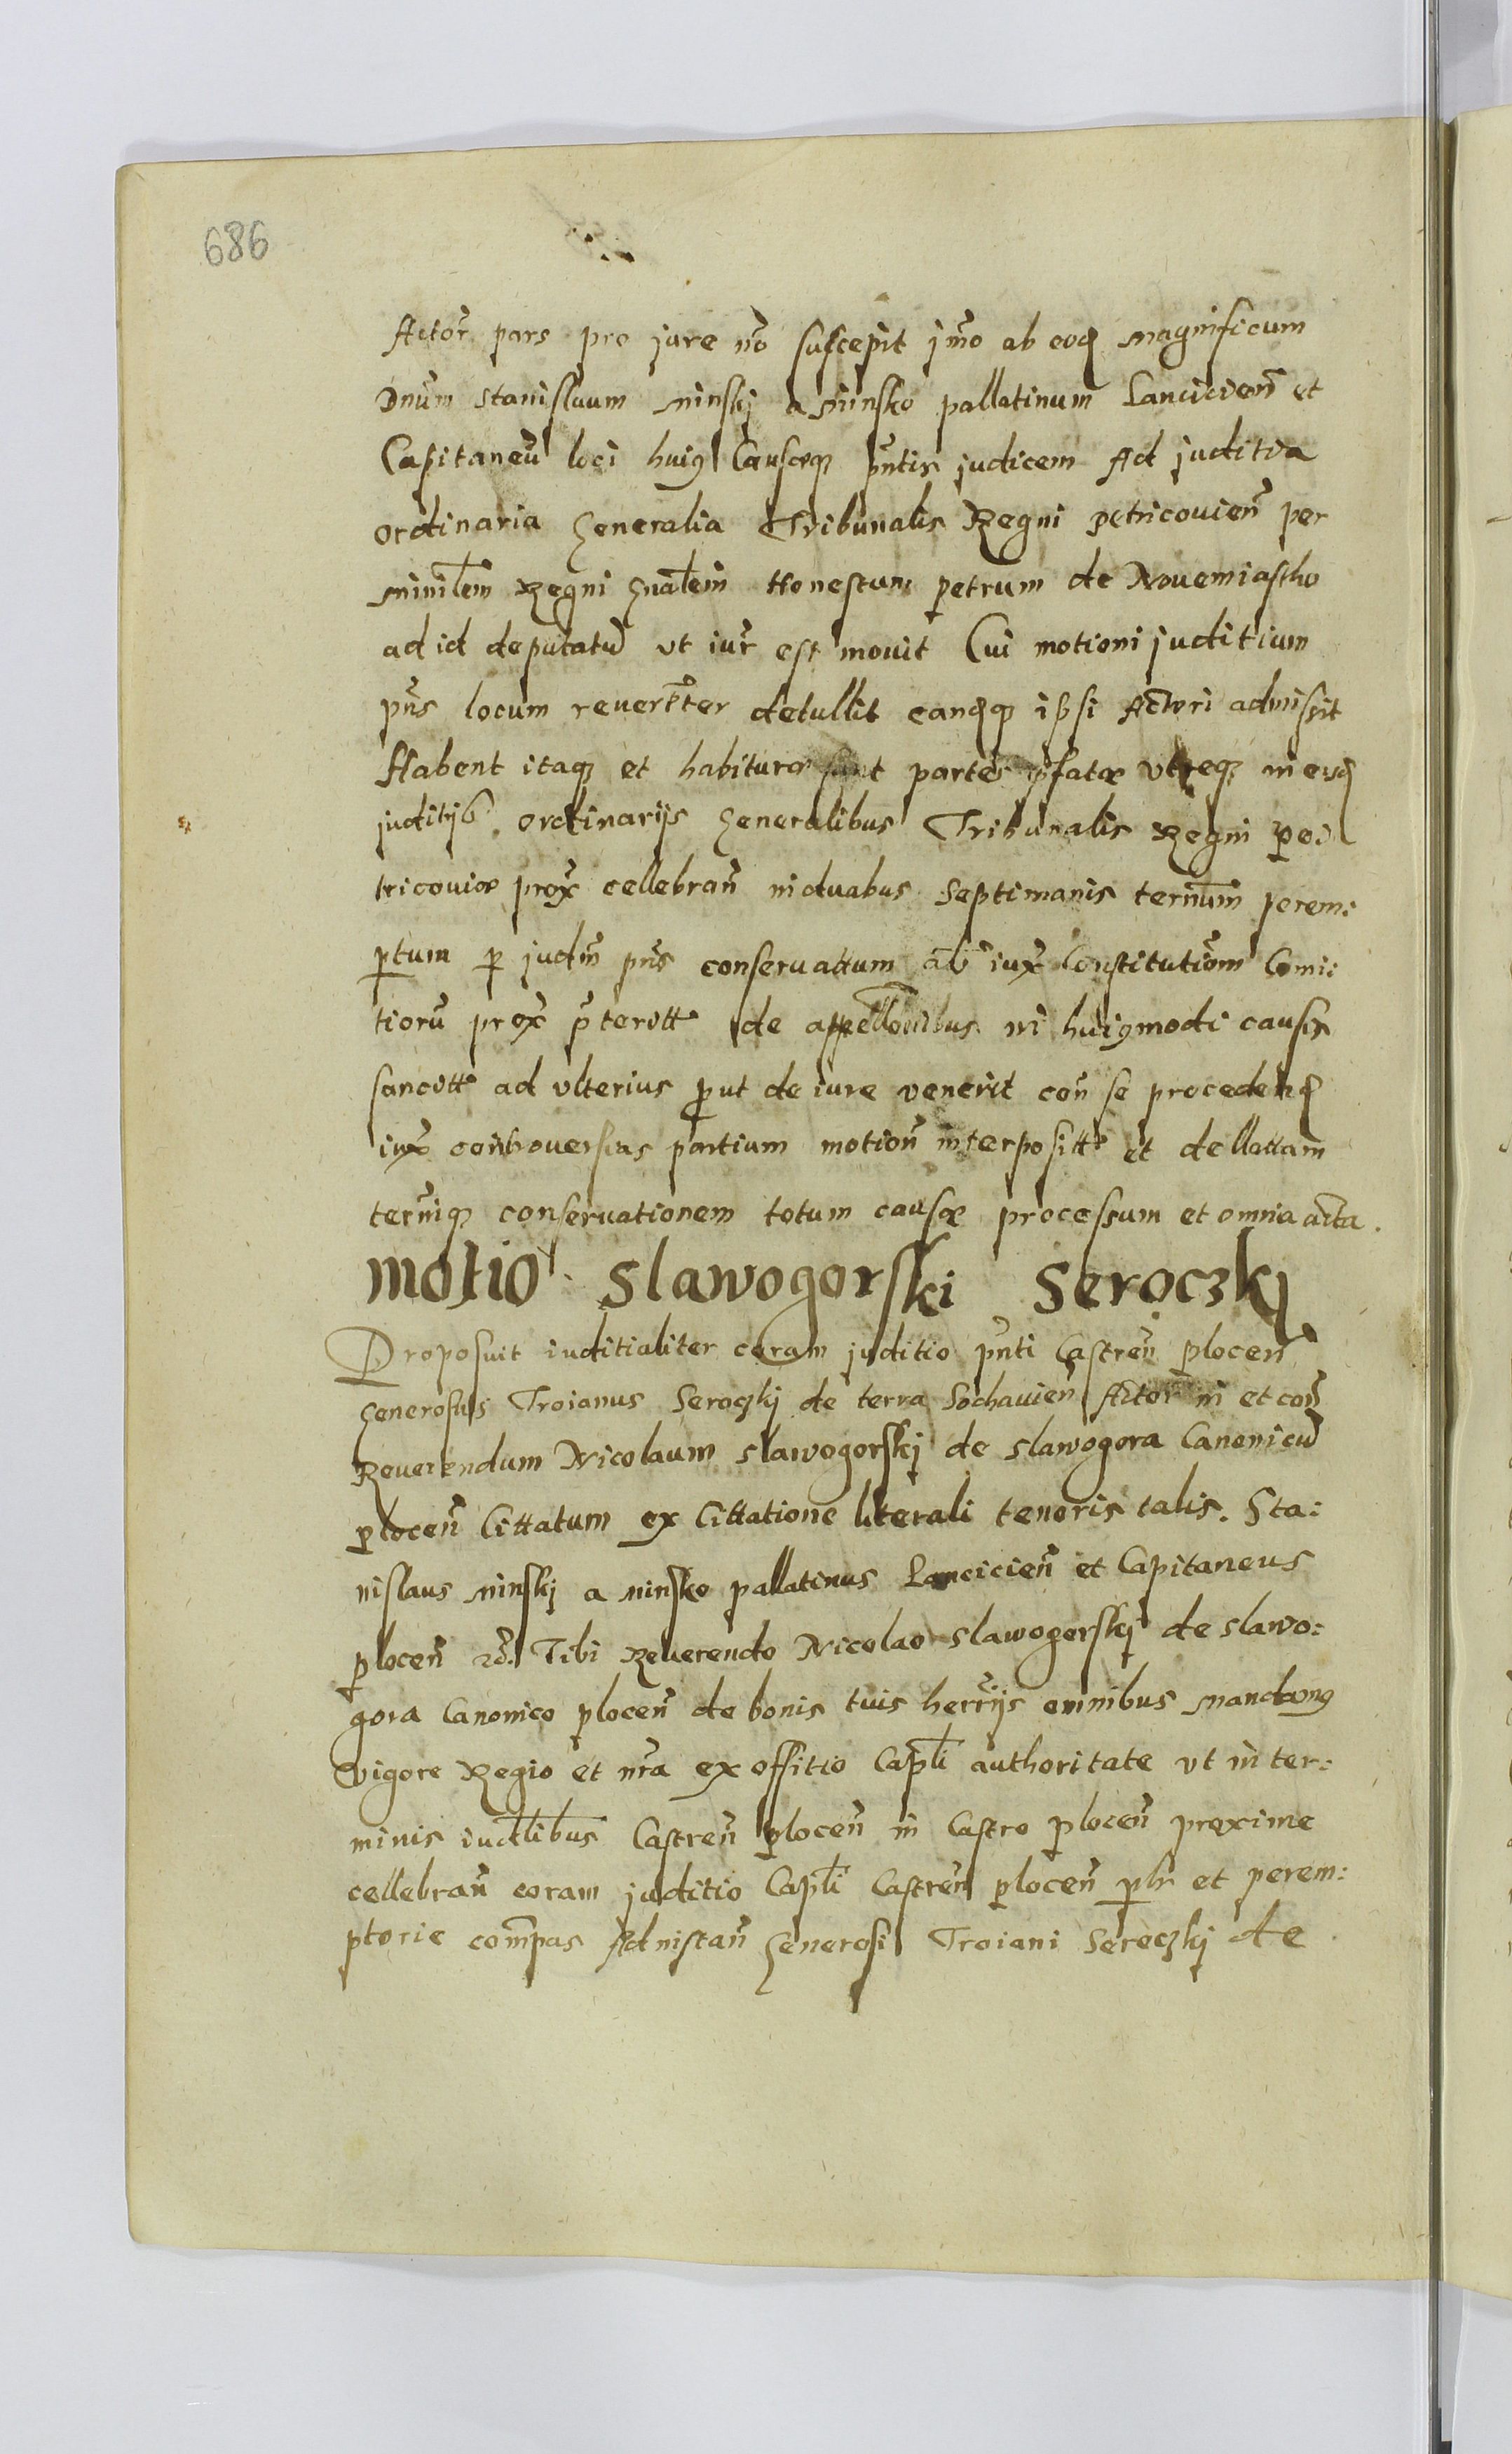 686
Actor̃ pars pro jure nõ suscepit jm̃o ab eoq̃ Magnificum
Dnũm Stanislaum Minskj a Minsko pallatinum Lancicien̄ et
Capitaneũ loci huiꝯ Causæqꝫ pñtis judicem Ad juditia
ordinaria Generalia Tribunalis Regni petricouien̄ per
Minĩlem Regni Gnãlem Honestum petrum de Nouemiastho
ad id deputatũ vt iur̃ est mouit Cui motioni juditium
pñs locum reuerẽter detullit eandqꝫ ipsi Actori admisit
Habent itaqꝫ et habituræ sunt partes p̃fatæ vtreqꝫ in eisd
juditijs ordinarijs Generalibus Tribunalis Regni pe:
tricouiæ prox̃ cellebran̄ in duabus Septimanis termĩm perem:
ptum p judm̃ pñs conseruattum ab iux̃ Constitutiõm Comi:
tiorũ prox̃ p̃teritt de appellõnibus in huiꝯmodi causis
sancitt ad vlterius prout de iure venerit coñ se procedend
iux̃ controuersias partium motioñ interpositt et dellattam
termĩqꝫ conseruationem totum causæ processum et omnia acta.
Motio Slawogorski Seroczkj
Proposuit iuditialiter coram juditio pñti Castren̄ plocen̄
Generosus Troianus Seroczkj de terra Sochauien̄ Actor in et coñ
Reuerendum Nicolaum Slawogorskj de Slawogora Canonicũ
plocen̄ Cittatum ex Cittatione literali tenoris talis. Sta:
nislaus Minskj a Minsko pallatinus Lancicien̄ et Capitaneus
plocen̄ &c̃. Tibi Reuerendo Nicolao Slawogorskj de Slawo:
gora Canonico plocen̄ de bonis tuis herr̃ijs omnibus mandamꝯ
vigore Regio et nr̃a ex offitio Caplĩ authoritate vt in ter:
minis iudlĩbus Castren̄ plocen̄ in Castro plocen̄ proxime
cellebran̄ coram juditio Caplĩ Castren̄ plocen̄ plr̃ et perem:
ptorie com̃pas Ad nistan̄ Generosi Troiani Seroczkj de